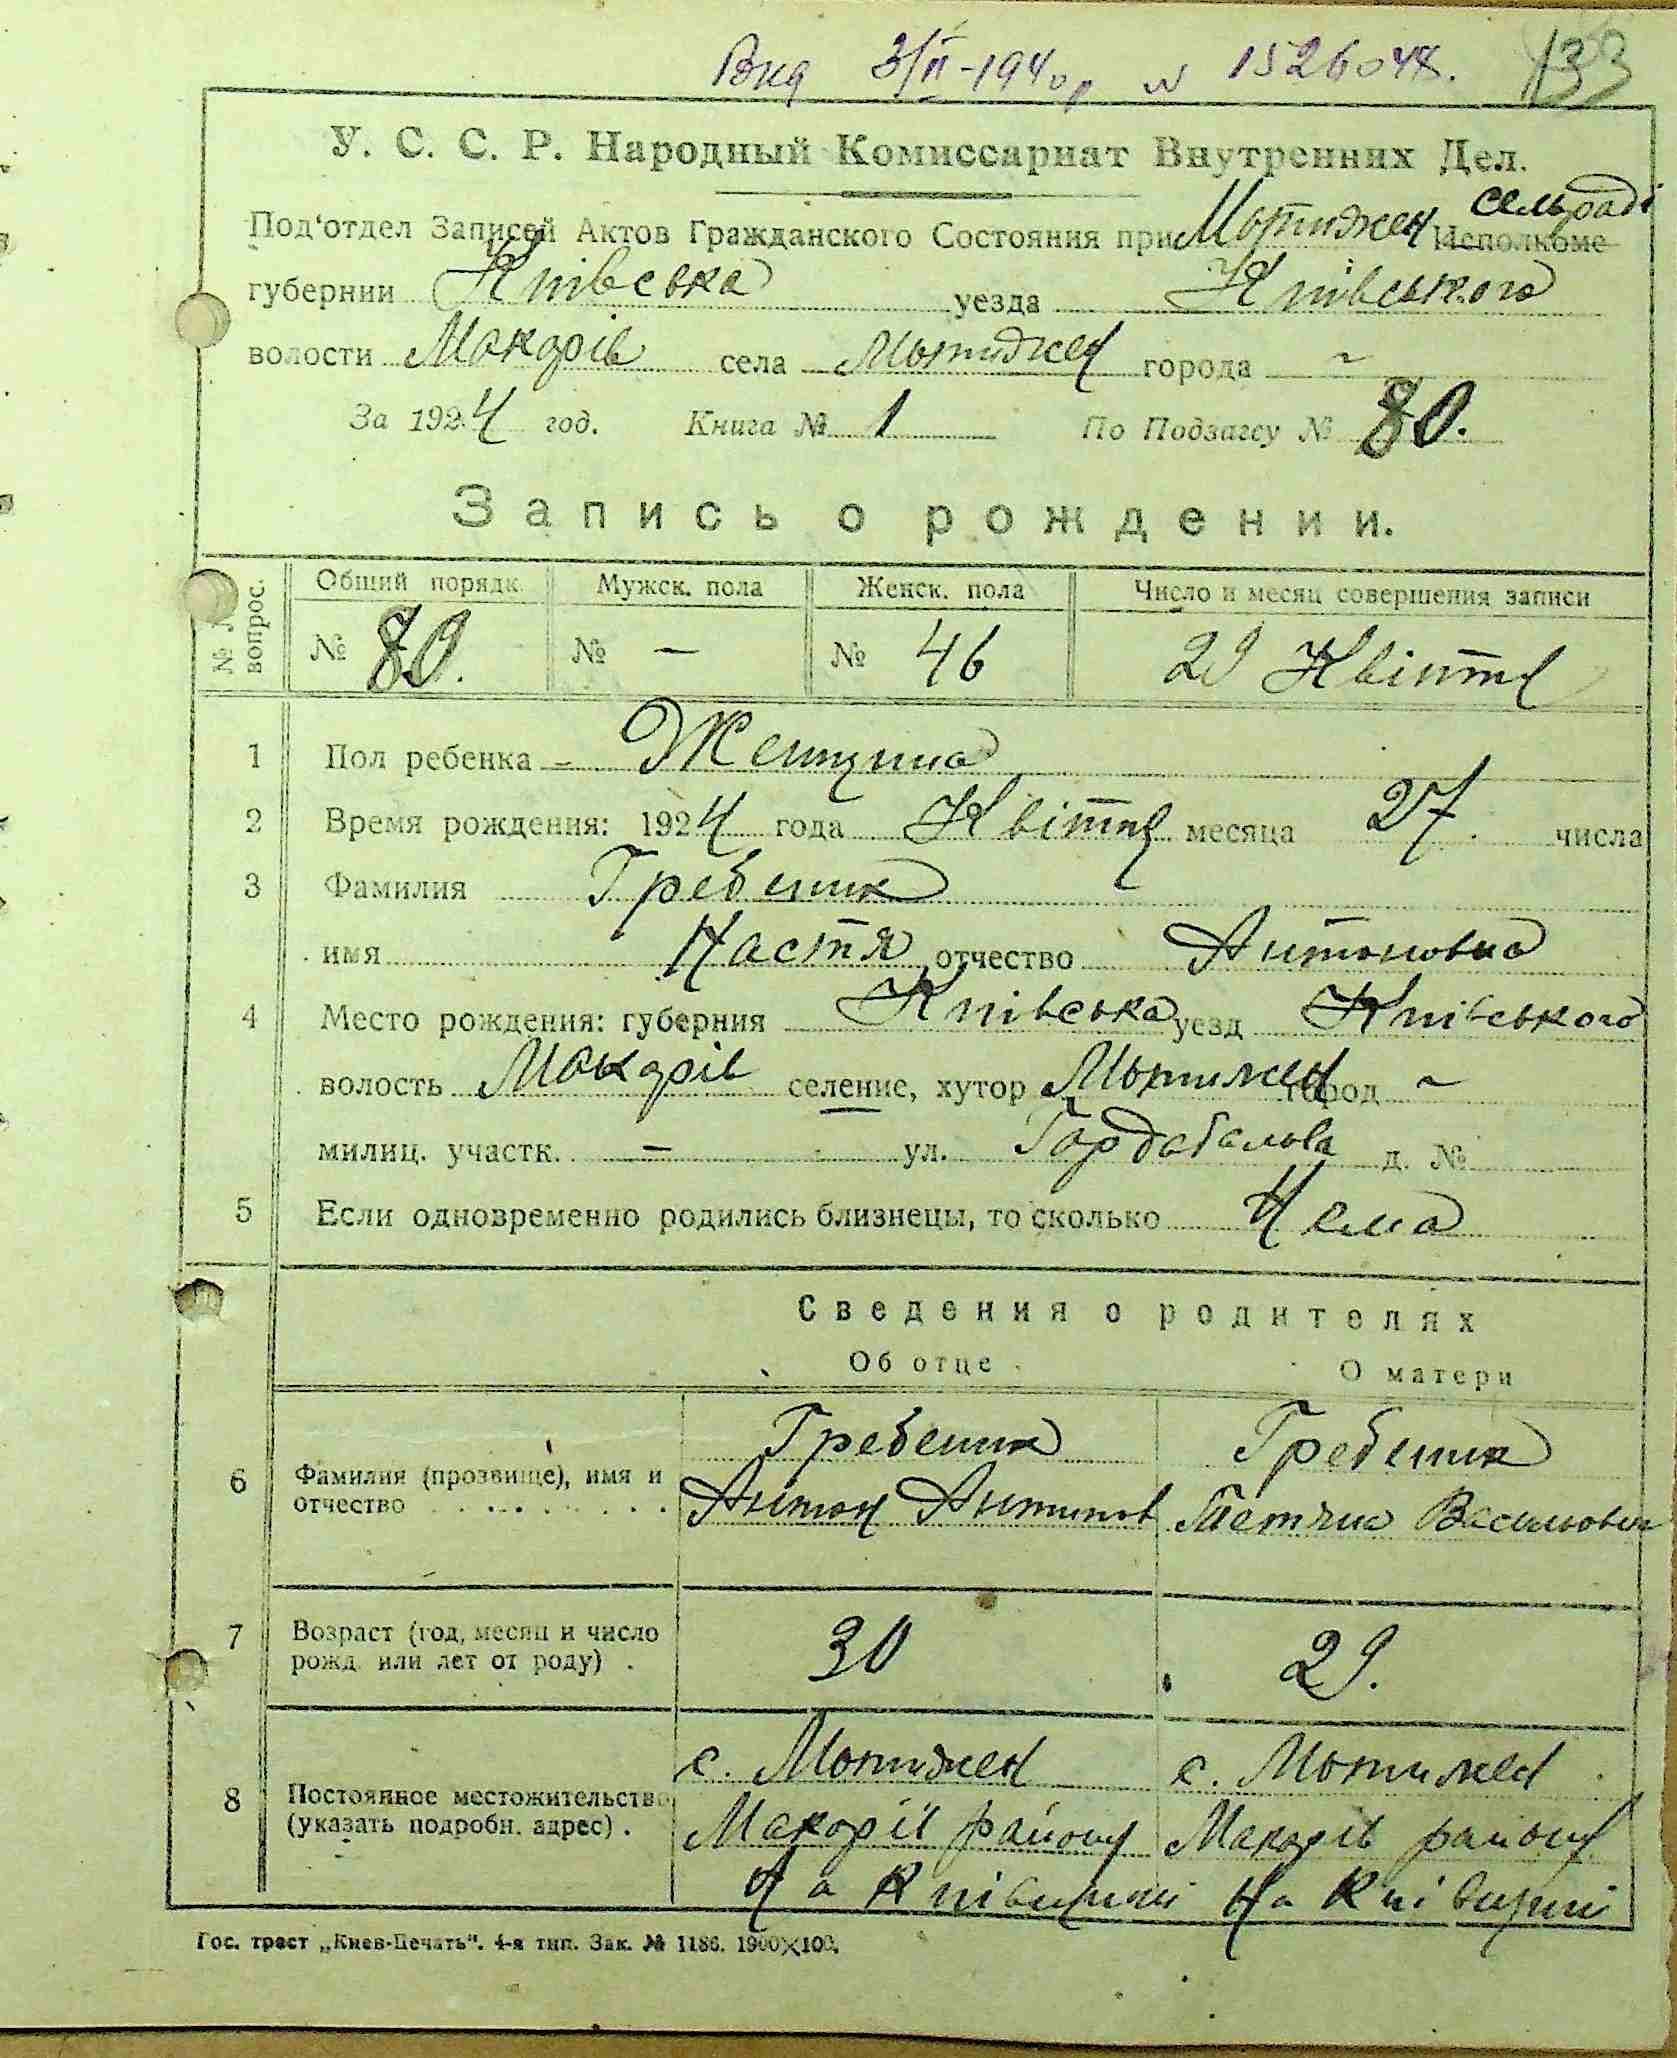 Вид 3/II-1940р N 1526048. 133
У. С. С. Р. Народный Комиссариат Внутренних Дел.
Под'отдел Записей Актов Гражданского Состояния при Мотижен сельраді Исполкоме
губернии Київська уезда Київського
волости Макарів села Мотижен города ~
За 1924 год. Книга № 1 По Подзагсу № 80.
Запись о рождении.
№ № вопрос. Общий порядк. Мужск. пола Женск. пола Число и месяц совершения записи
№ 80. № — № 46 29 Квітня
1 Пол ребенка – Женщина
2 Время рождения: 1924 года Квітня месяца 27. числа
3 Фамилия Гребеник
имя Настя отчество Антоновна
4 Место рождения: губерния Київська уезд Київського
волость Макарів селение, хутор Мотижен город ~
милиц. участк. — ул. д. №
5 Если одновременно родились близнецы, то сколько Нема
Сведения о родителях
Об отце О матери
Гребеник Гребеник
6 Фамилия (прозвище), имя и
отчество . . . . . . . Антон Антипов Тетяна Васильовна
7 Возраст (год, месяц и число
рожд. или лет от роду) . 30 29.
с. Мотижен с. Мотижен
8 Постоянное местожительство
(указать подробн. адрес) . Макарів району Макарів району
на Київщині на Київщині
Гос. трест „Киев-Печать“. 4-я тип. Зак. № 1186. 1900×100.